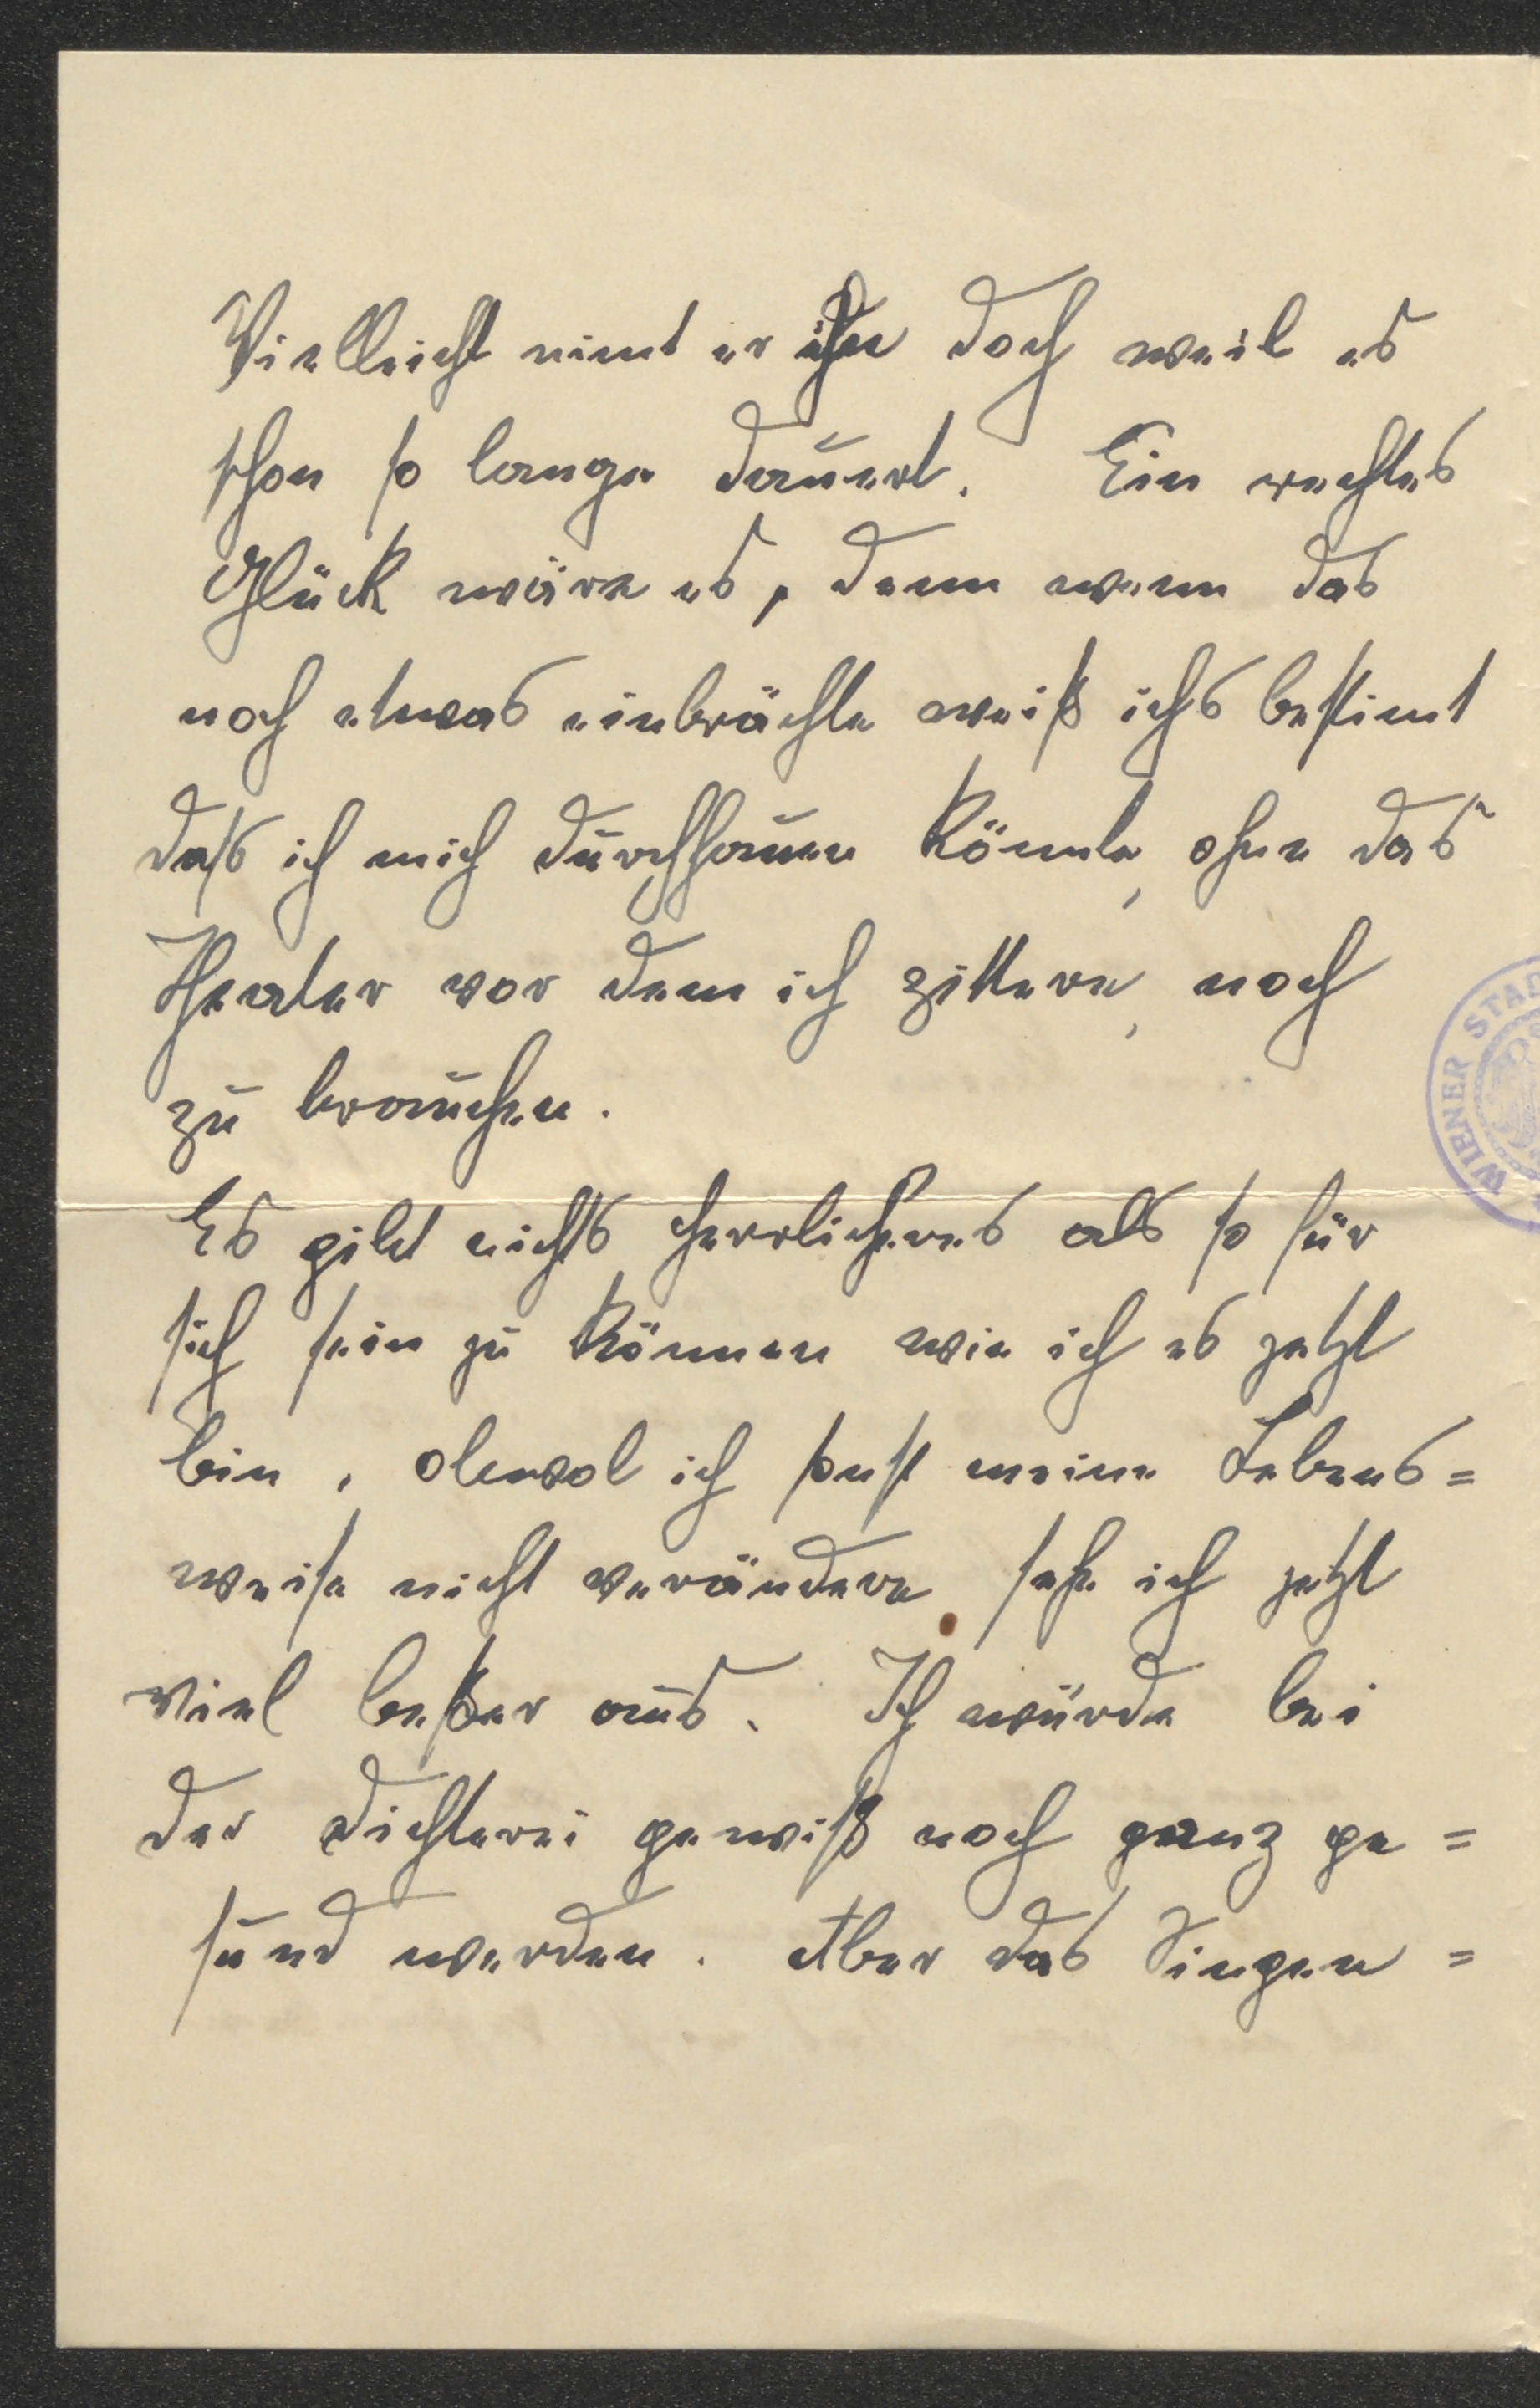 Vielleicht nimt er ihn doch weil es
schon so lange dauert. Ein rechtes
Glück wäre es, denn wenn das
noch etwas einbrächte weiß ichs bestimt
daß ich mich durchhauen könnte, ohne das
Theater vor dem ich zittere, noch
zu brauchen.
Es gibt nichts herrlicheres als so für
sich sein zu können wie ich es jetzt
bin, obwol ich sonst meine Lebens=
weise nicht verändere sehe ich jetzt
viel beßer aus. Ich würde bei
der Dichterei gewiß noch ganz ge=
sund werden. Aber das Singen=
WIENER STAD